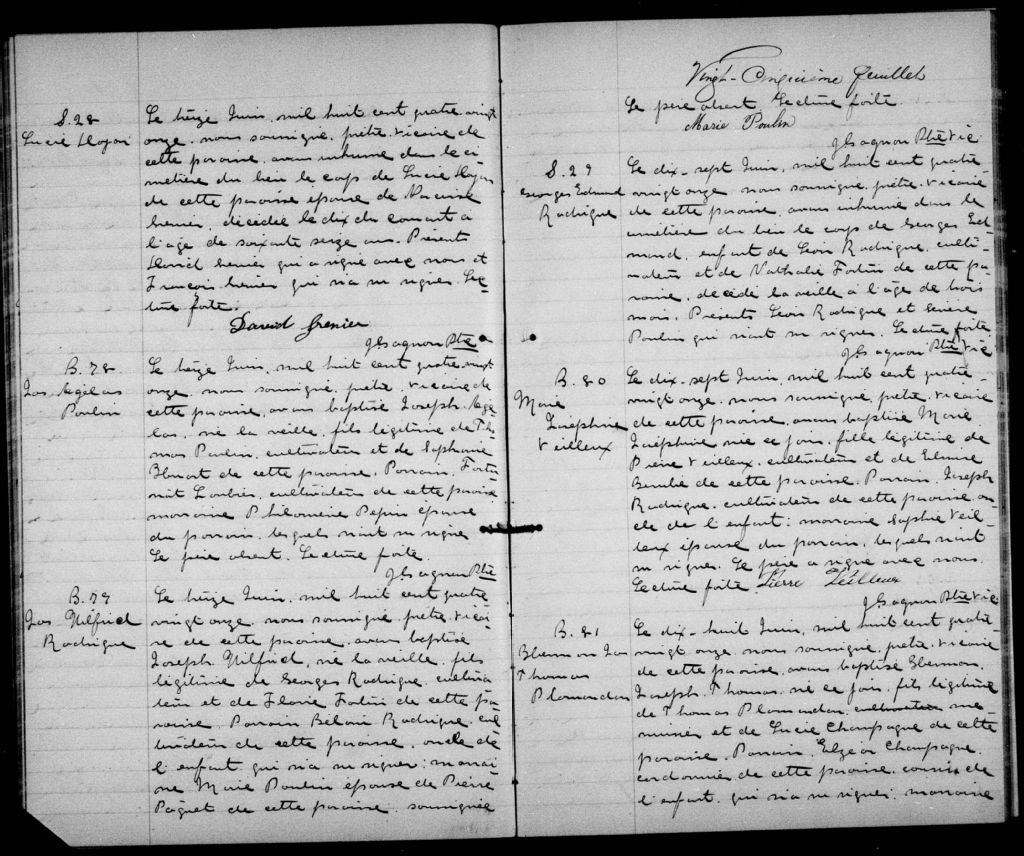 S. 28
Lucie
Le treize Juin, mil huit cent quatre-vingt
onze, nous soussigné, prêtre, vicaire de
cette paroisse, avons inhumé dans le ci-
metière du lieu le corps de Lucie
de cette paroisse épouse de Narcisse
Grenier, décédée le dix du courant à
l'âge de soixante seize ans. Présents
David Grenier qui a signé avec nous et
François Grenier qui n'a su signer. Lec-
ture faite.
David Grenier
J Gagnon Ptre
B. 78
Jos
Poulin
Le treize Juin, mil huit cent quatre-vingt
onze, nous soussigné, prêtre, vicaire de
cette paroisse, avons baptisé Joseph
né la veille, fils légitime de
Poulin, cultivateur et de Sophronie
de cette paroisse. Parrain Fortu-
nat cultivateur de cette paroisse
marraine Philomène Pepin épouse
du parrain, lesquels n'ont su signer
Le père absent. Lecture faite.
J Gagnon Ptre
B. 79
Jos Wilfrid
Rodrigue
Le treize Juin, mil huit cent quatre
vingt onze, nous soussigné, prêtre, vicai-
re de cette paroisse, avons baptisé
Joseph Wilfrid, né la veille, fils
légitime de Georges Rodrigue, cultiva-
teur et de Flavie Fortin de cette pa-
roisse. Parrain Rodrigue, cul-
tivateur de cette paroisse, oncle de
l'enfant qui n'a su signer; marrai-
ne Marie Poulin épouse de Pierre
Paquet de cette paroisse, soussignée
Vingt-Cinquième feuillet
Le père absent, Lecture faite.
Marie Poulin
J Gagnon Ptre Vic
S. 29
Georges Edmond
Rodrigue
Le dix-sept Juin, mil huit cent quatre-
vingt onze, nous soussigné, prêtre, vicaire
de cette paroisse, avons inhumé dans le
cimetière du lieu le corps de Georges Ed-
mond, enfant de Léon Rodrigue, culti-
vateur et de Nathalie Fortin de cette pa-
roisse, décédé la veille à l'âge de trois
mois. Présents Léon Rodrigue et
Poulin qui n'ont su signer. Lecture faite
J Gagnon Ptre Vic
B. 80
Marie
Joséphine
Veilleux
Le dix-sept Juin, mil huit cent quatre-
vingt onze, nous soussigné, prêtre, vicaire
de cette paroisse, avons baptisé Marie
Joséphine née ce jour, fille légitime de
Pierre Veilleux, cultivateur et de Elmire
de cette paroisse. Parrain, Joseph
Rodrigue, cultivateur de cette paroisse, on-
cle de l'enfant; marraine Sophie Veil-
leux épouse du parrain, lesquels n'ont
su signer. Le père a signé avec nous.
Lecture faite. Pierre Veilleux
J Gagnon Ptre Vic
B. 81
Jos
Thomas
Plamondon
Le dix-huit Juin, mil huit cent quatre-
vingt onze, nous soussigné, prêtre, vicaire
de cette paroisse, avons baptisé
Joseph, Thomas, né ce jour, fils légitime
de Thomas Plamondon cultivateur me-
nuisier et de Lucie Champagne de cette
paroisse. Parrain, Elzéar Champagne,
cordonnier de cette paroisse, cousin de
l'enfant, qui n'a su signer; marraine